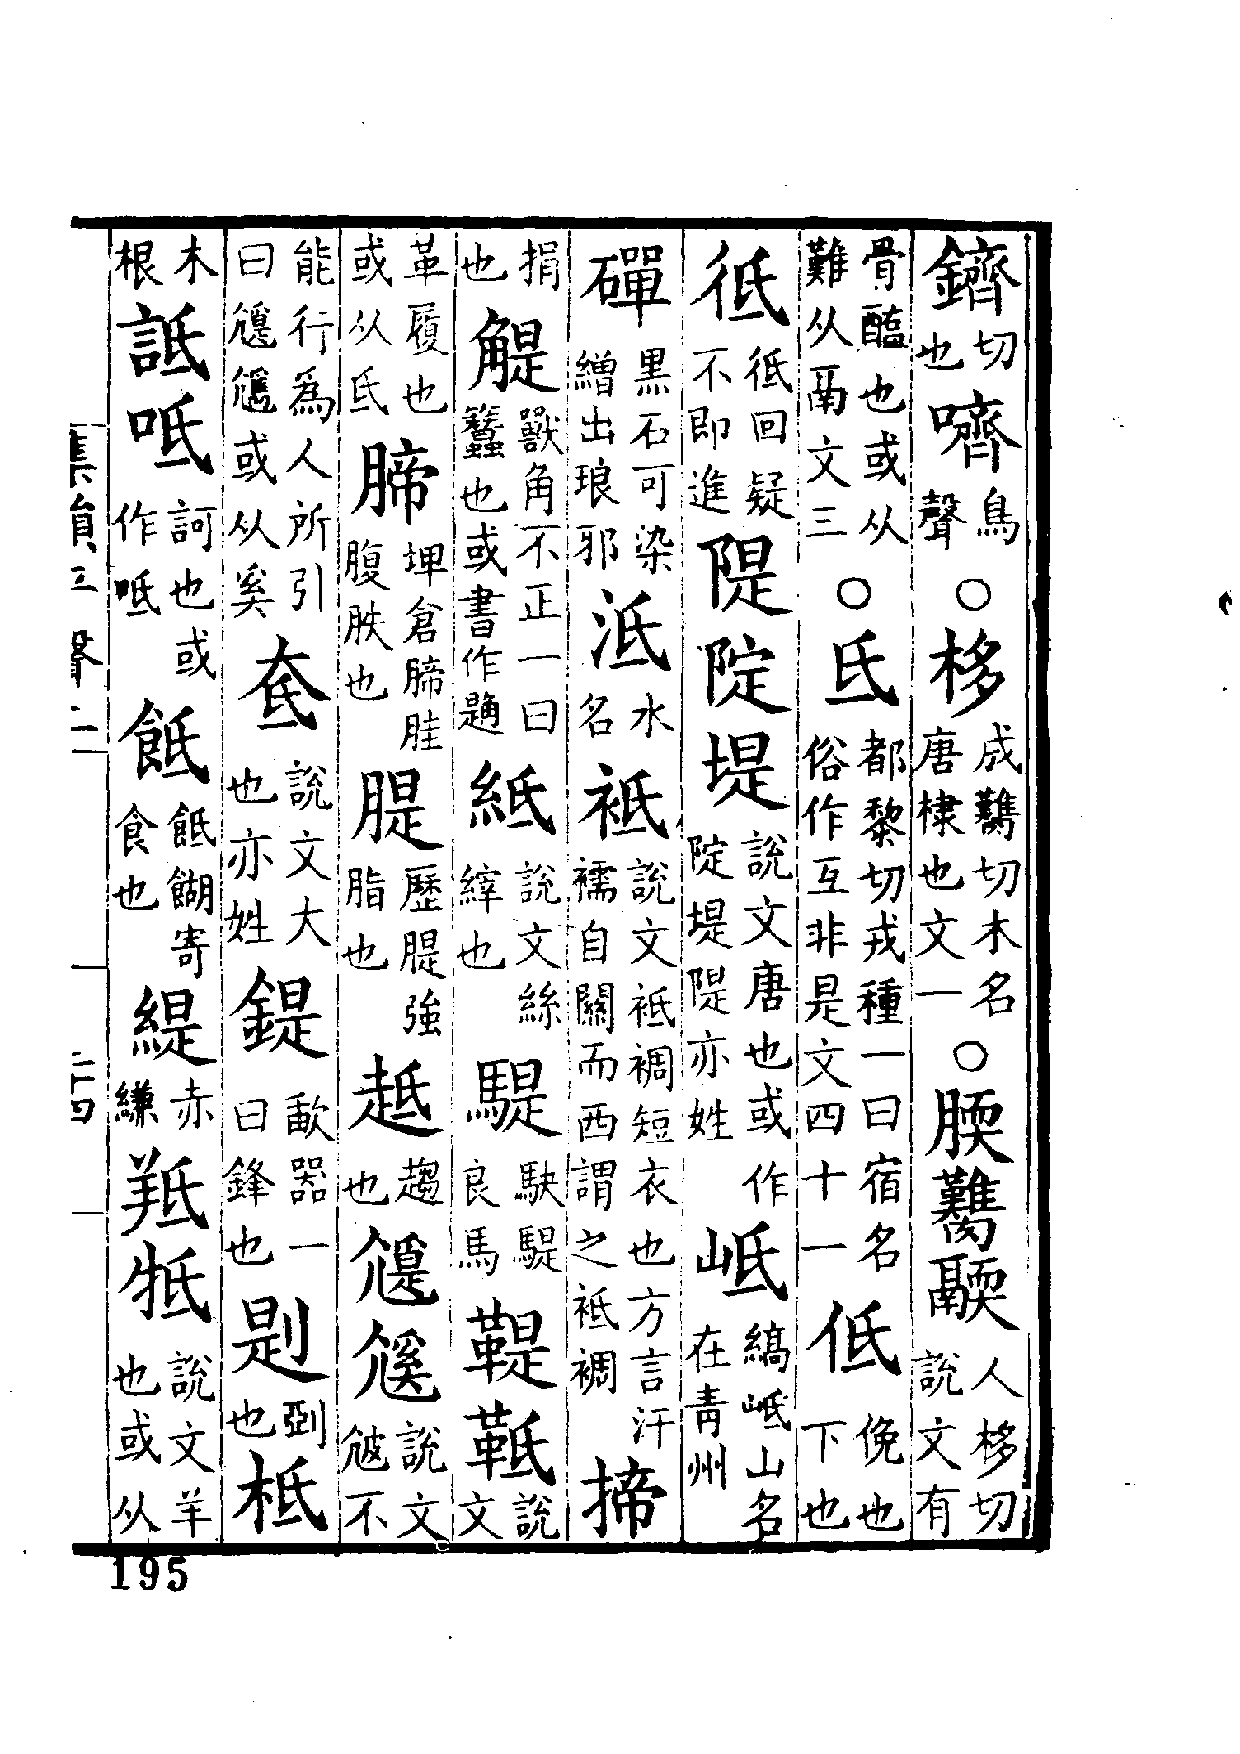 鑇切也嚌鳥聲○栘成𪄿切木名唐棣也文一○腝𪄿𩱗人栘切說文有
骨醢也或从難从鬲文三○氐都黎切戎種一曰宿名俗作互非是文四十一低俛也下也
彽彽回疑不即進隄阺堤說文唐也或作阺堤隄亦姓岻縞岻山名在青州
磾黑石可染繒出琅邪泜水名袛說文袛裯短衣也方言汗襦自關而西謂之袛裯揥
捐也䚣獸角不正一曰簺也或書作䚣紙說文絲縡也騠駃騠良馬鞮䩚說文
革履也或从氐腣埤倉腣胵腹胅也䐎歷䐎強脂也趆趨也尳㞛說文尳不
能行為人所引曰㞛尳或从奚奃說文大也亦姓鍉歃器一曰鋒也剬剄也柢
木根詆呧訶也或作呧䬫䬫餬寄食也緹赤縑羝牴說文羊也或从
集韻平聲二
二十四
195